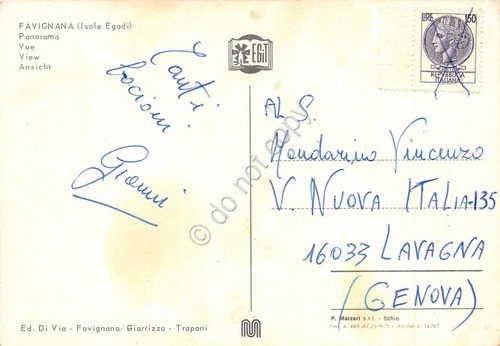 FAVIGNANA (Isole Egadi)
Panorama
Vue
View
Ansicht
EGIT
LIRE 150
REPVBBLICA
ITALIANA
Tanti
bacioni
Gianni
AL S.
Mondarino Vincenzo
V. NUOVA ITALIA-135
16033 LAVAGNA
(GENOVA)
do not copy
Ed. Di Via - Favignana/Giarrizzo - Trapani
P. Marzari s.r.l. - Schio